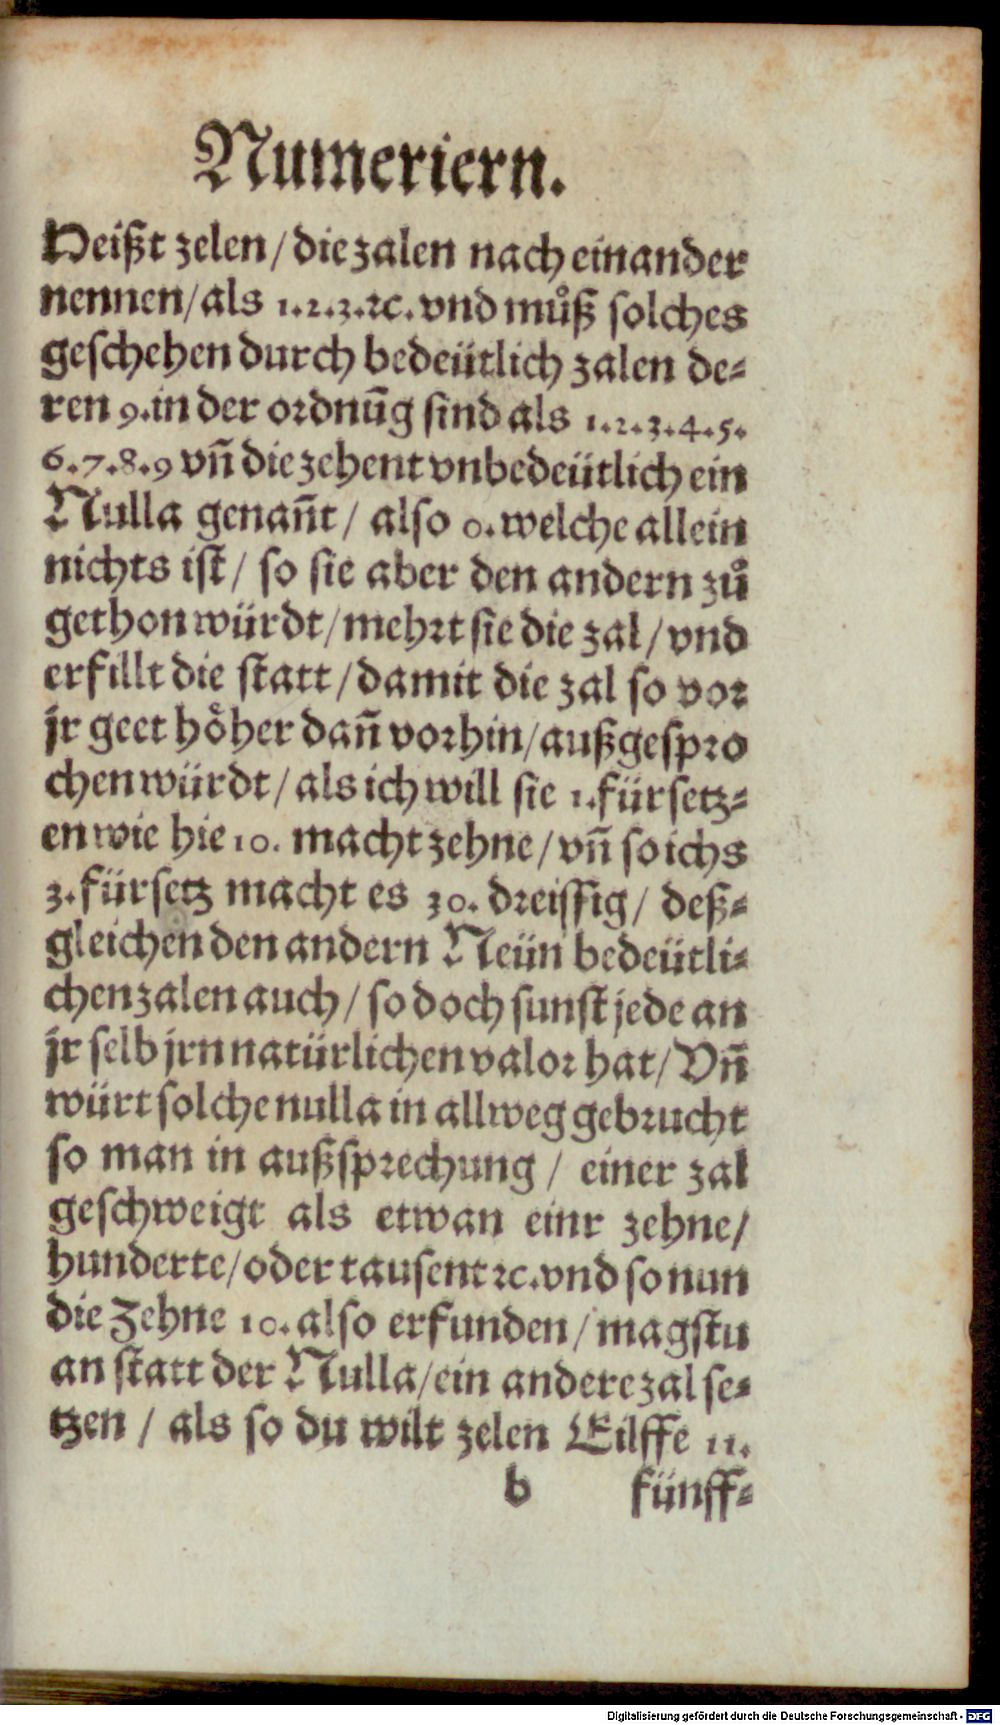 Numeriern.
Heißt zelen / die zalen nach einander
nennen / als 1. 2. 3. ꝛc. vnd muͦß solches
geschehen durch bedeütlich zalen de⸗
ren 9. in der ordnūg sind als 1. 2. 3. 4. 5.
6. 7. 8. 9 vn̄ die zehent vnbedeütlich ein
Nulla genan̄t / also 0. welche allein
nichts ist / so sie aber den andern zuͦ
gethon würdt / mehrt sie die zal / vnd
erfillt die statt / damit die zal so vor
jr geet hoͤher dan̄ vorhin / außgespro
chen würdt / als ich will sie 1. für setz⸗
en wie hie 10. macht zehne / vn̄ so ichs
3. fürsetz macht es 30. dreissig / deß⸗
gleichen den andern Neün bedeütli⸗
chen zalen auch / so doch sunst jede an
jr selb jrn natürlichen valor hat / Vn̄
würt solche nulla in allweg gebrucht
so man in außsprechung / einer zal
geschweigt als etwan einr zehne /
hunderte / oder tausent ꝛc. vnd so nun
die Zehne 10. also erfunden / magstu
an statt der Nulla / ein andere zal se⸗
tzen / als so du wilt zelen Eilffe 11.
b fünff⸗
Digitalisierung gefördert durch die Deutsche Forschungsgemeinschaft - DFG